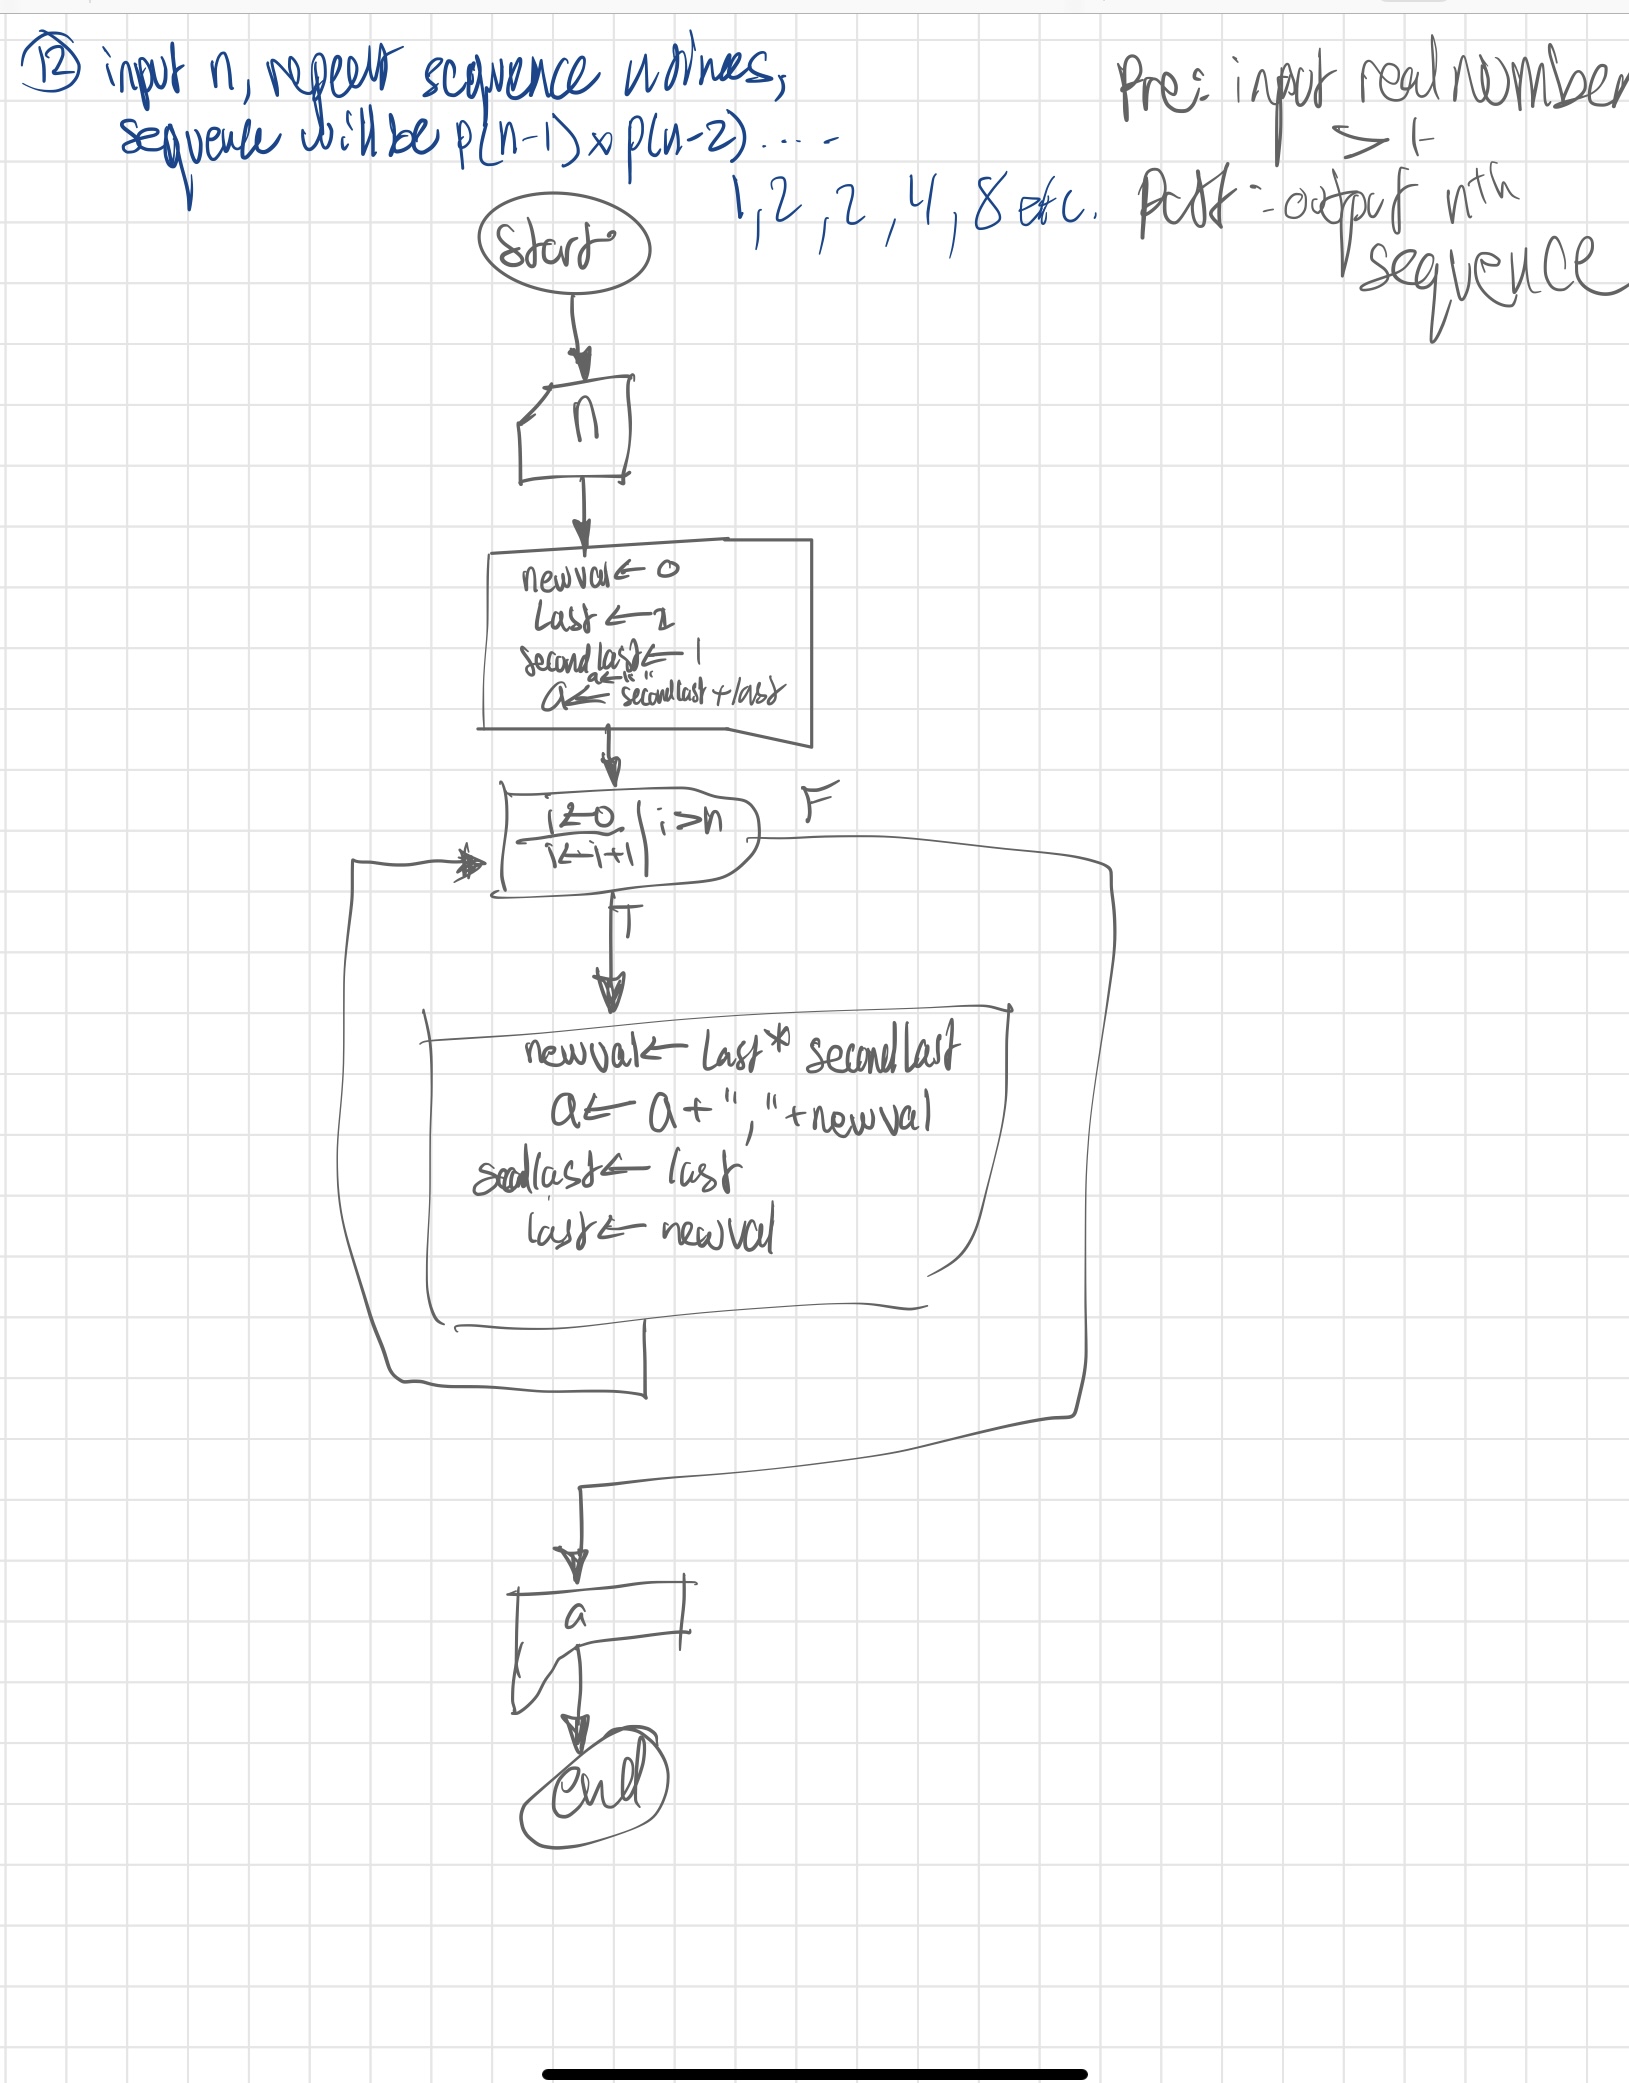 12 input n, repeat sequence n times,
sequence will be p(n-1) x p(n-2) ....
1, 2, 2, 4, 8 etc.
Pre: input real number
> 1
Post: output nth
sequence
start
n
newval ← 0
Last ← 2
secondlast ← 1
a ← " "
a ← secondlast + last
i ← 0 | i > n
i ← i + 1
F
T
newval ← Last * secondLast
a ← a + "," + newval
secndlast ← last
last ← newval
a
end